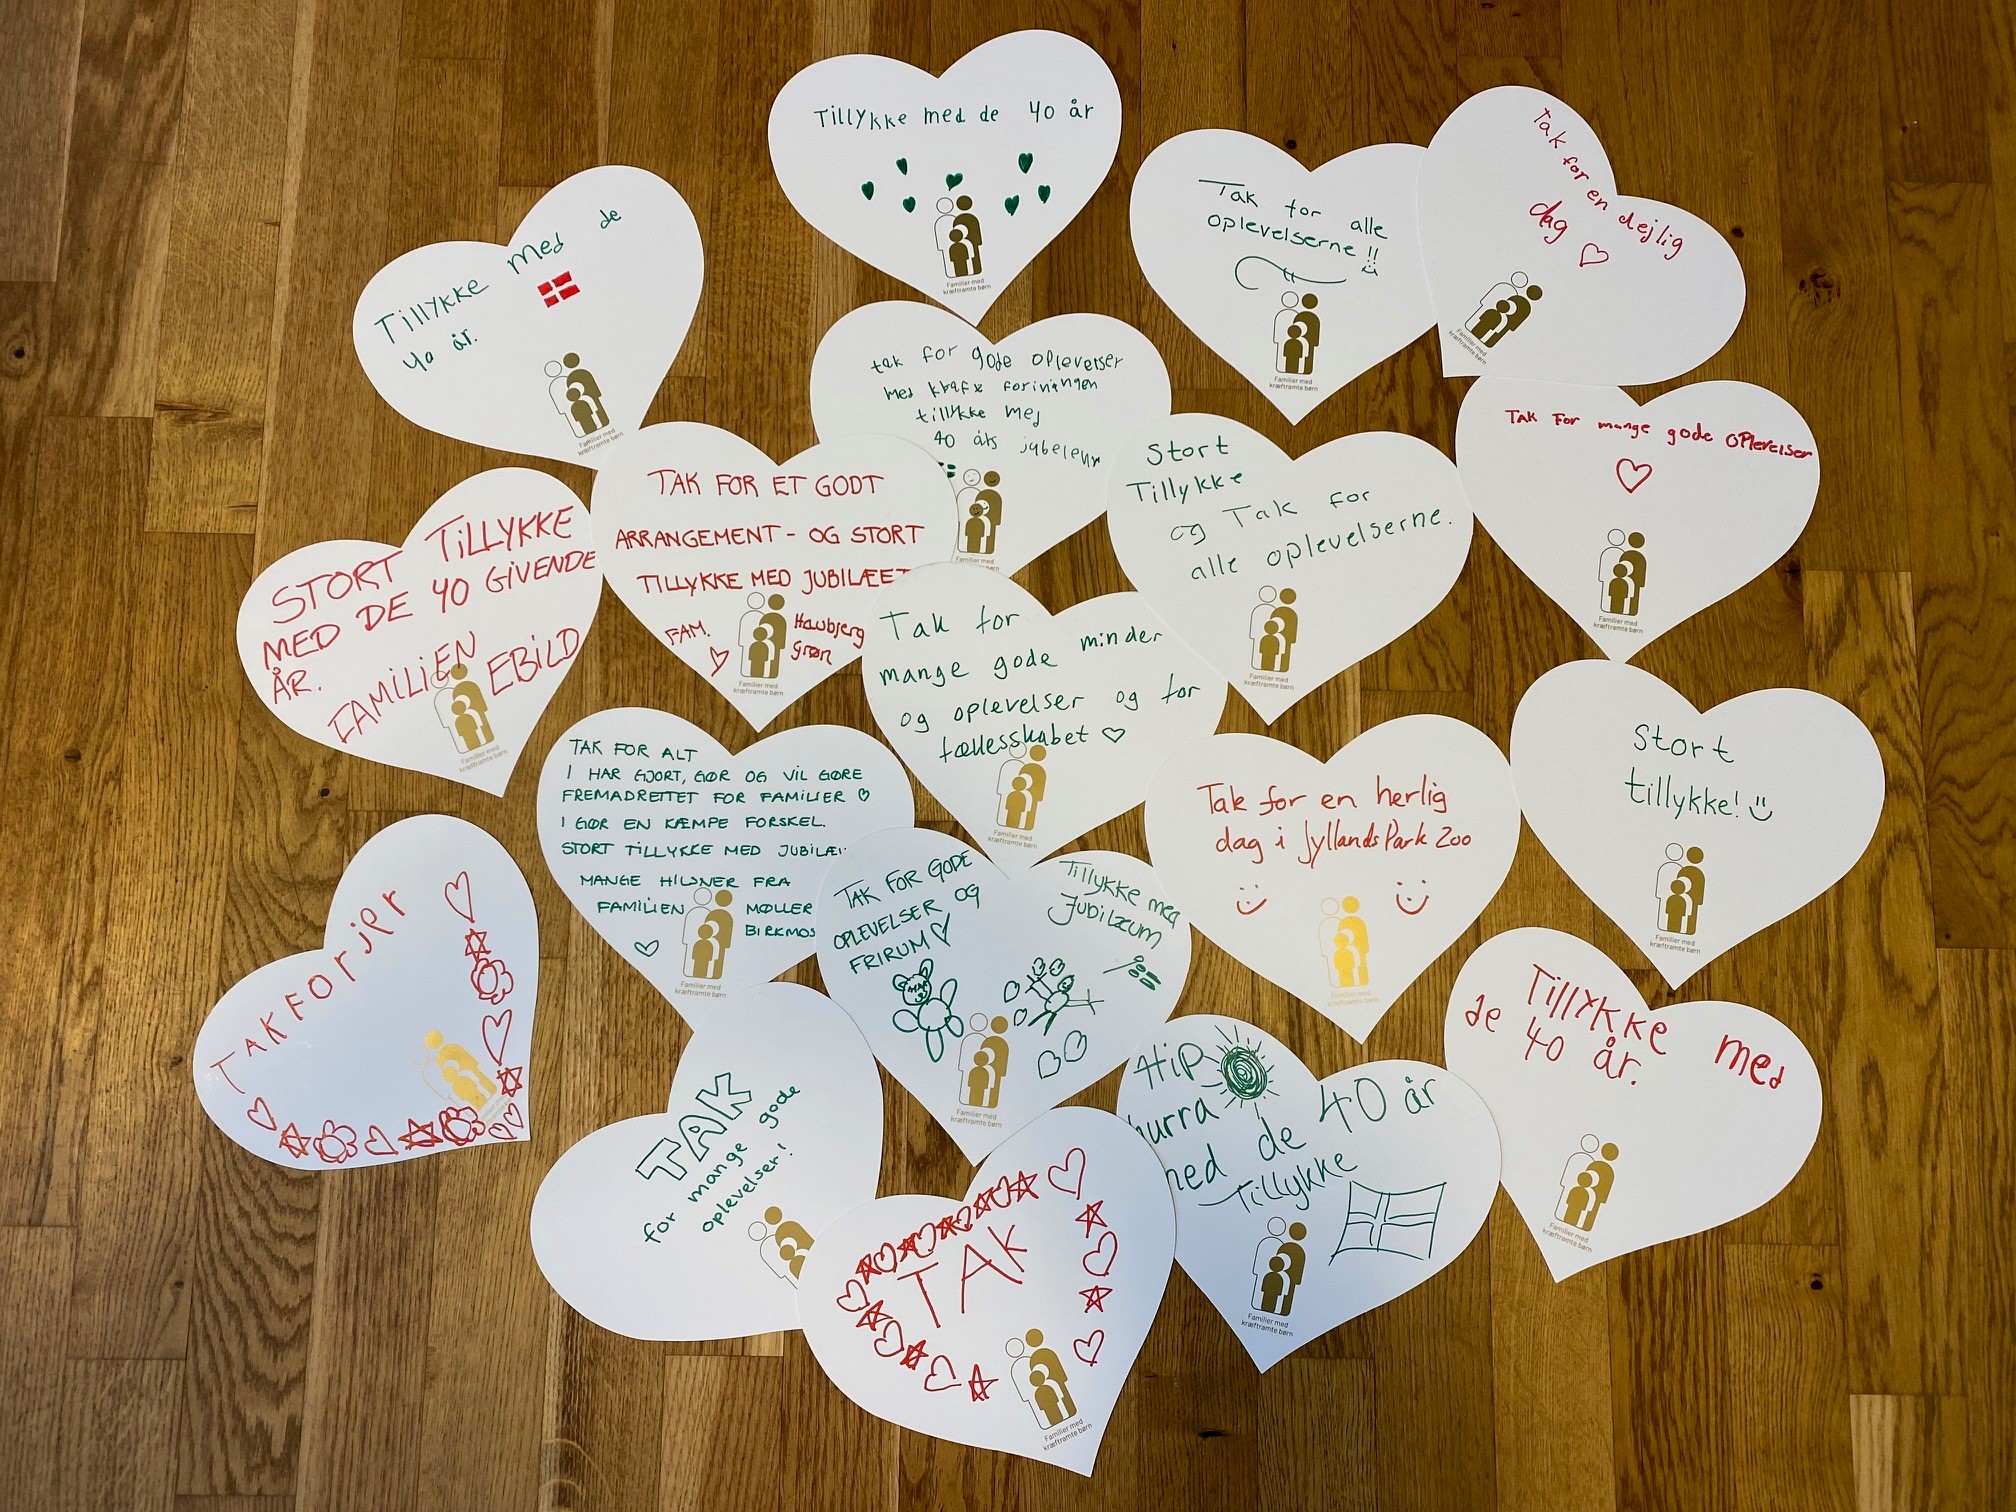 Tillykke med de 40 år
Familier med
kræftramte børn
Tak for alle
oplevelserne !!
Familier med
kræftramte børn
Tak for en dejlig
dag
Familier med
kræftramte børn
Tillykke med de
40 år.
Familier med
kræftramte børn
tak for gode oplevelser
med
tillykke med
40 års
Familier med
Stort
Tillykke
og Tak for
alle oplevelserne.
Familier med
kræftramte børn
Tak For mange gode oplevelser
Familier med
kræftramte børn
STORT TILLYKKE
MED DE 40 GIVENDE
ÅR.
FAMILIEN
EBILD
Familier med
kræftramte børn
TAK FOR ET GODT
ARRANGEMENT - OG STORT
TILLYKKE MED JUBILÆET
FAM.
Haubjerg
Grøn
Familier med
kræftramte børn
Tak for
mange gode minder
og oplevelser og for
fællesskabet
Familier med
kræftramte børn
Stort
tillykke!
Familier med
kræftramte børn
TAK FOR ALT
I HAR GJORT, GØR OG VIL GØRE
FREMADRETTET FOR FAMILIER
I GØR EN KÆMPE FORSKEL.
STORT TILLYKKE MED JUBILÆ
MANGE HILSNER FRA
FAMILIEN MØLLER
BIRKMOS
Familier med
kræftramte børn
Tak for en herlig
dag i JyllandsPark Zoo
Familier med
kræftramte børn
TAK FOR GODE
OPLEVELSER OG
FRIRUM
Tillykke med
Jubilæum
Familier med
kræftramte børn
TAKFORJER
Tillykke med
de 40 år.
Familier med
kræftramte børn
TAK
for mange gode
oplevelser!
Hip
hurra
med de 40 år
Tillykke
Familier med
kræftramte børn
TAK
Familier med
kræftramte børn